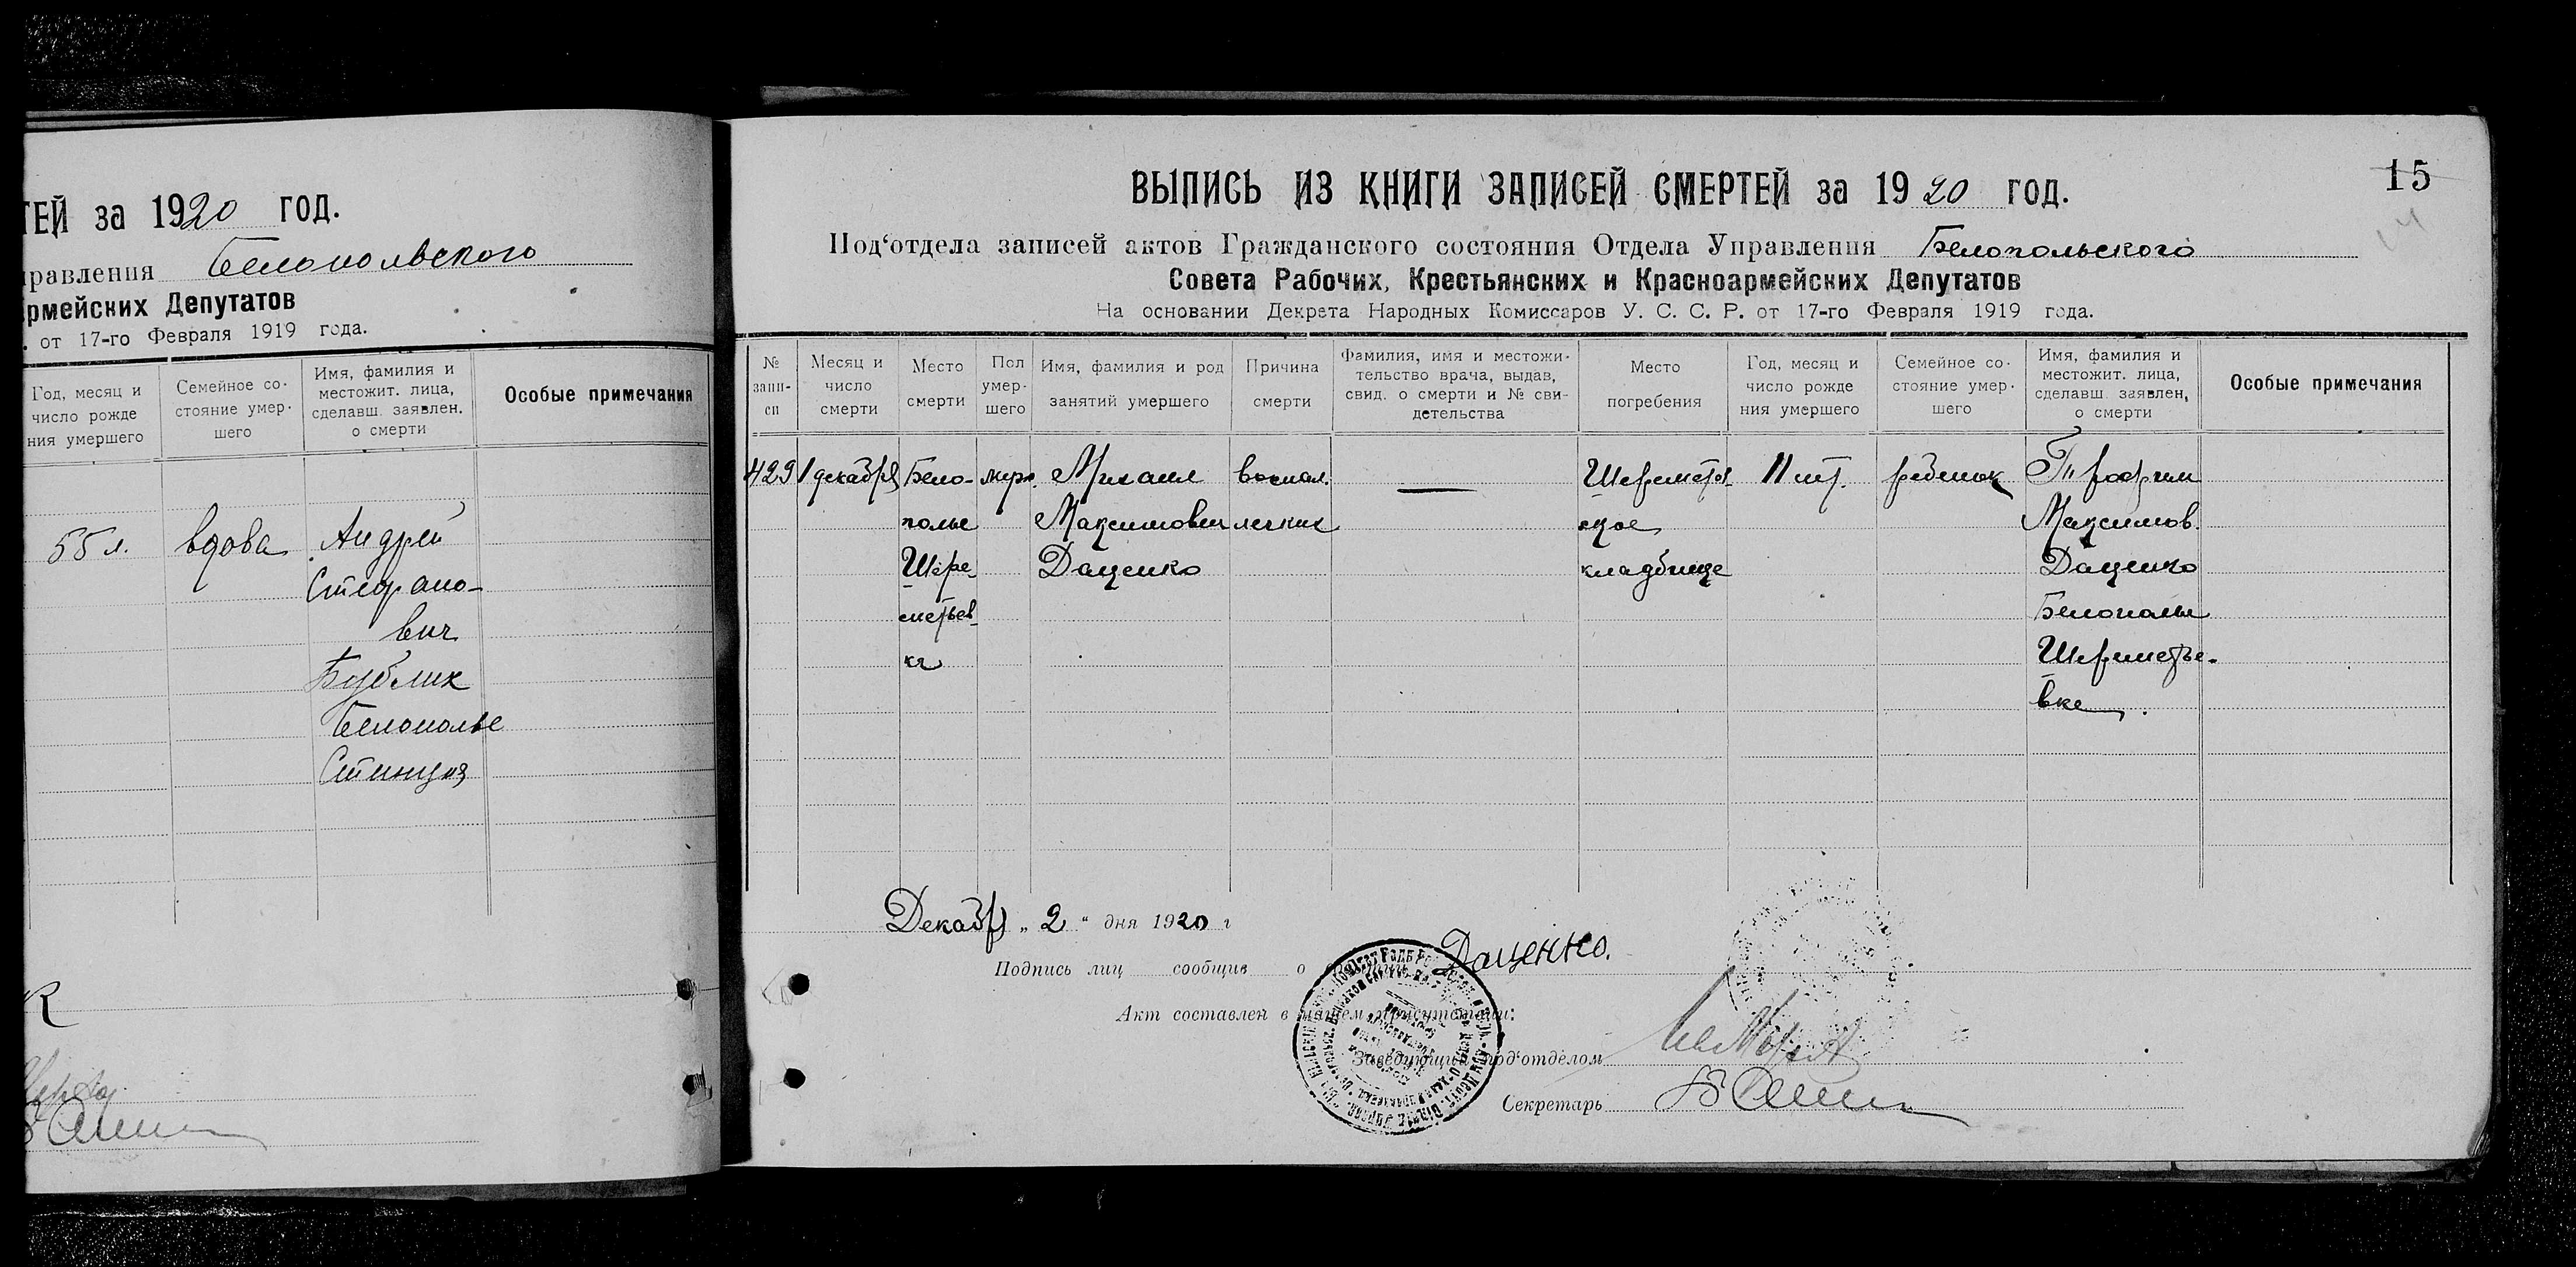 ТЕЙ за 1920 год.
правления Белопольского
армейских Депутатов
. от 17-го Февраля 1919 года.
Год, месяц и число рождения умершего
Семейное состояние умер-шего
Имя, фамилия и местожит. лица, сделавш. заявлен. о смерти
Особые примечания
55 л. вдова Андрей
Стефано-
вич
Бублик
Белополье
Станция
15
14
ВЫПИСЬ ИЗ КНИГИ ЗАПИСЕЙ СМЕРТЕЙ за 1920 год.
Под‘отдела записей актов Гражданского состояния Отдела Управления Белопольского
Совета Рабочих, Крестьянских и Красноармейских Депутатов
На основании Декрета Народных Комиссаров У. С. С. Р. от 17-го Февраля 1919 года.
№ запи-си
Месяц и число смерти
Место смерти
Пол умер-шего
Имя, фамилия и род занятий умершего
Причина смерти
Фамилия, имя и местожи-тельство врача, выдав, свид. о смерти и № сви-детельства
Место погребения
Год, месяц и число рожде ния умершего
Семейное со-стояние умер-шего
Имя, фамилия и местожит. лица, сделавш. заявлен, о смерти
Особые примечания
429 1 декабря Бело- муж. Михаил воспал. — Шереметев- 11 ребенок Трофим
полье Максимович легких ское Максимов.
Шере- Даценко кладбище Даценко
метьев- Белополье
ка Шереметье-
вке
Декабря „ 2 “ дня 1920 г
Подпись лиц сообщив о Даценко.
Акт составлен в нашем присутствии:
Заведующий под‘отделом
Секретарь